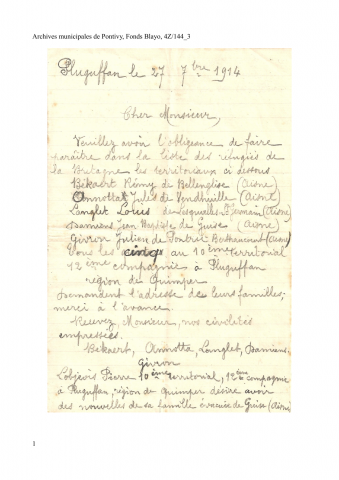 Archives municipales de Pontivy, Fonds Blayo, 4Z/144_3
Pluguffan le 27 7bre 1914
Cher Monsieur,
Veuillez avoir l'obligeance de faire
paraître dans la liste des réfugiés de
la Bretagne les territoriaux ci dessous
Békaert Rémy de Bellenglise (Aisne)
Annottat Jules de Vendhuille (Aisne)
Langlet Louis de Lesquielles St Germain (Aisne)
Damiens Jean Baptiste de Guise (Aisne)
Givron Julien de Bethancourt (Aisne)
Tous les cinq au 10ème territorial
12ème compagnie à Pluguffan
région de Quimper
Demandent l'adresse de leurs familles;
merci à l'avance.
Recevez, Monsieur, nos civilités
empressées.
Békaert, Annotta, Langlet, Damiens,
Givron
Pierre 10ème territorial, 12ème compagnie
à Pluguffan, région de Quimper désire avoir
des nouvelles de sa famille évacuée de Guise (Aisne)
1